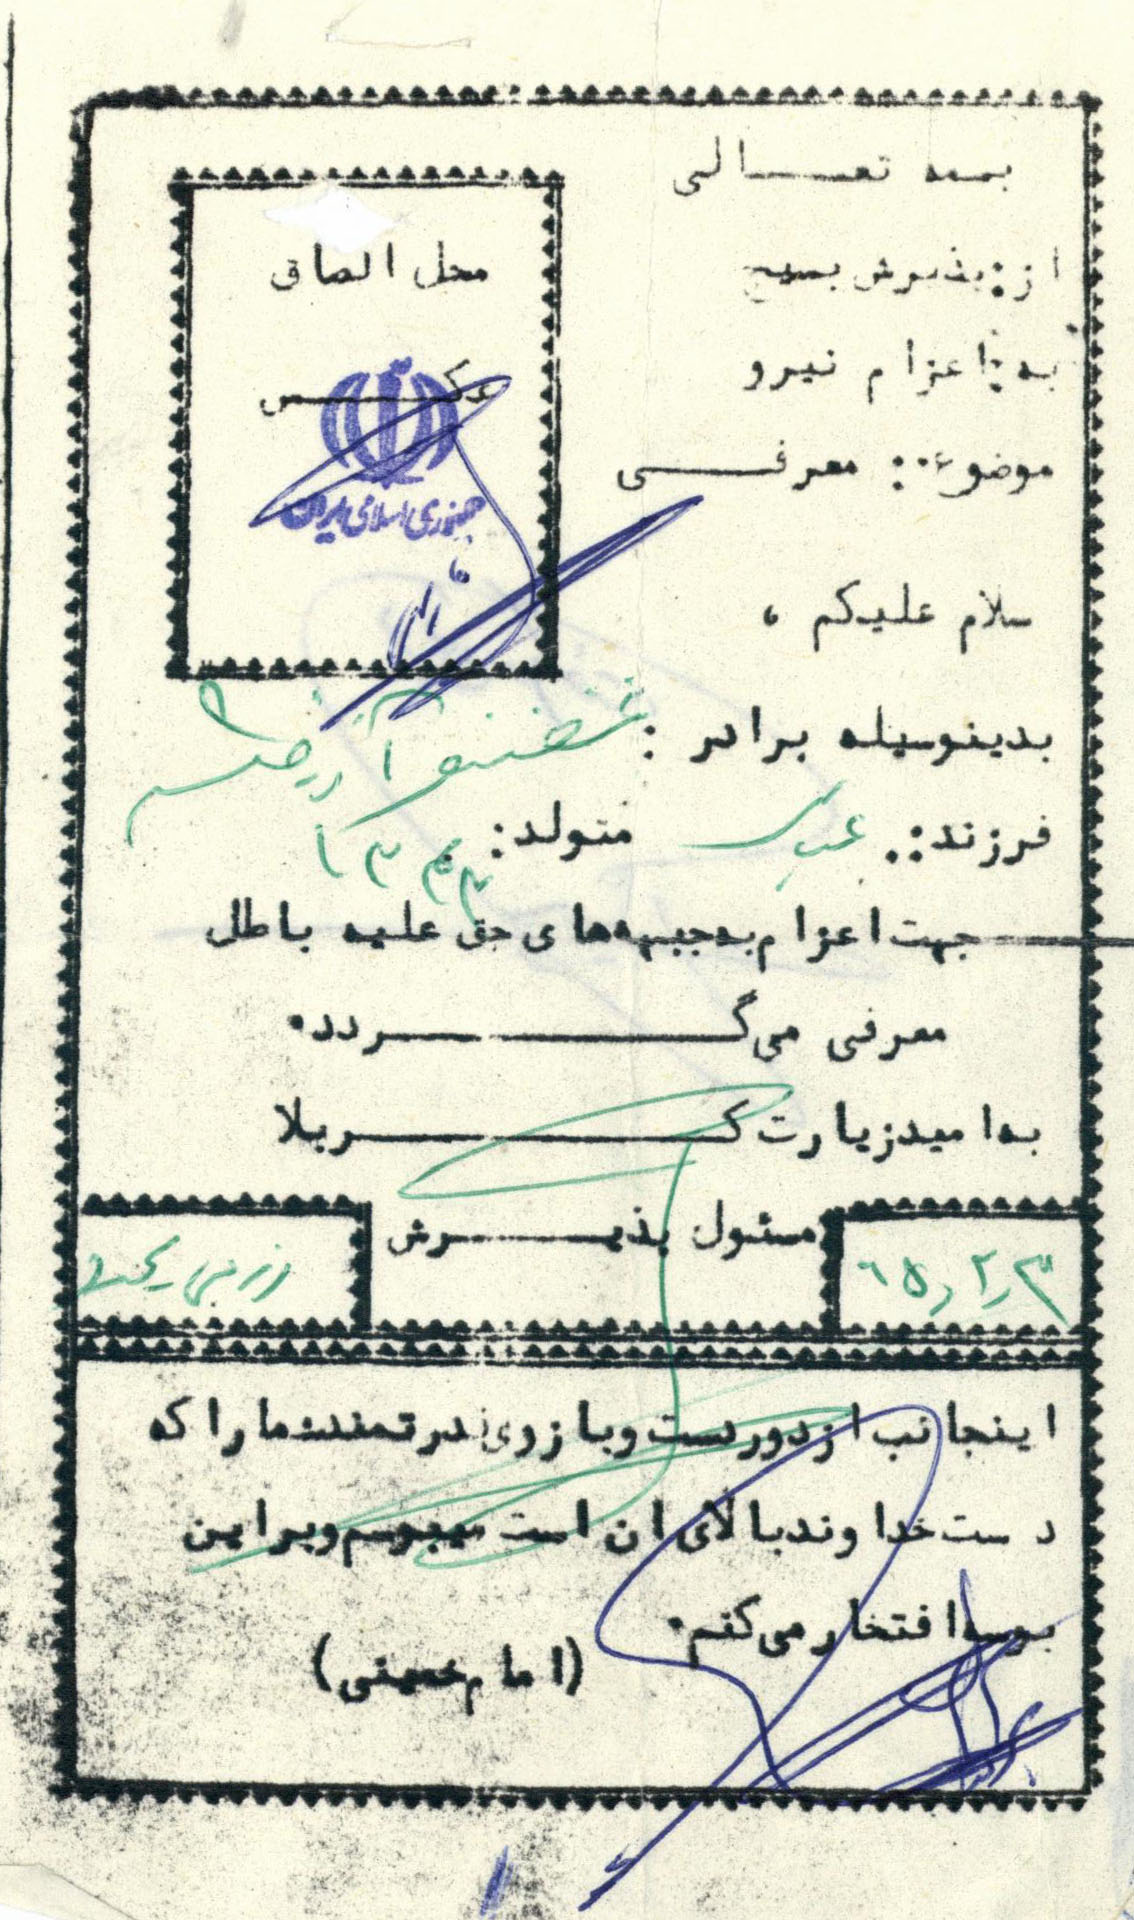 بسمه تعالی
از: پذیرش بسیج
به: اعزام نیرو
موضوع: معرفی
محل الصاق
عکس
جمهوری اسلامی ایران
سلام علیکم ،
بدینوسیله برادر :
فرزند: عباس متولد: ۱۳۴۴
جهت اعزام به جبهه‌های حق علیه باطل
معرفی می‌گردد.
به امید زیارت کربلا
مسئول پذیرش
۶۵٫۲٫۳
رزمی
اینجانب از دور دست و بازوی قدرتمند شما را که
دست خداوند بالای ان است میبوسم و بر این
بوسه افتخار می‌کنم.
(امام خمینی)